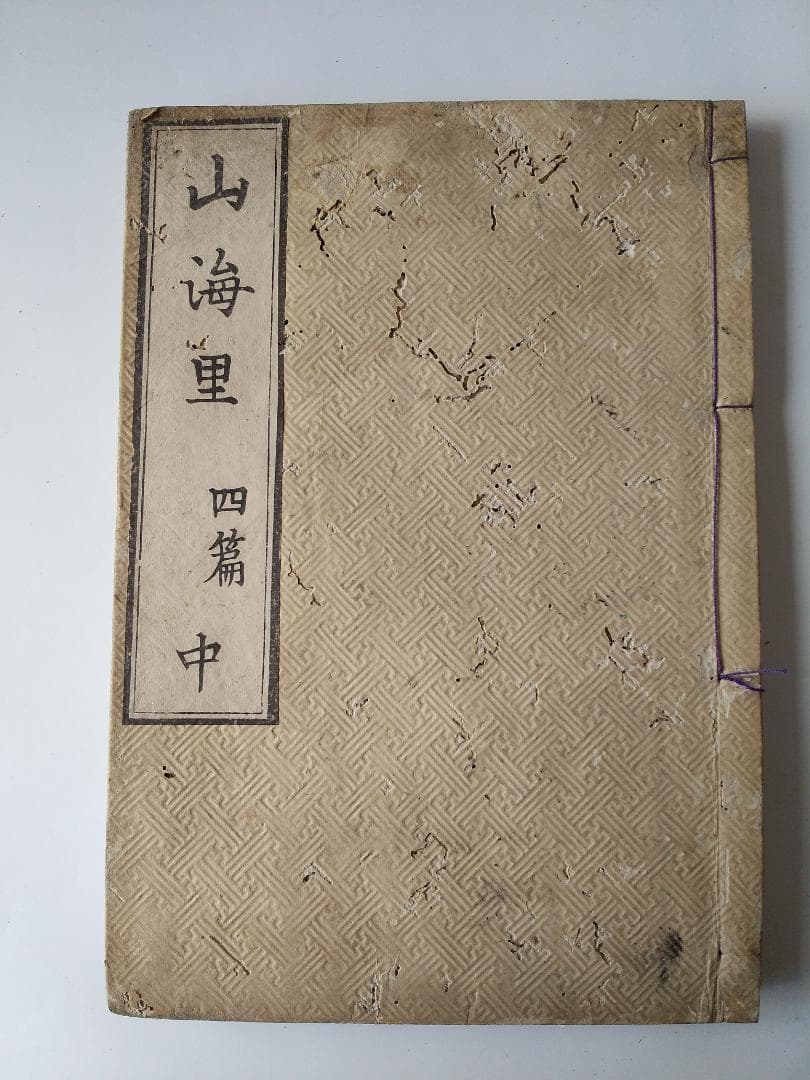 山海里 四篇 中